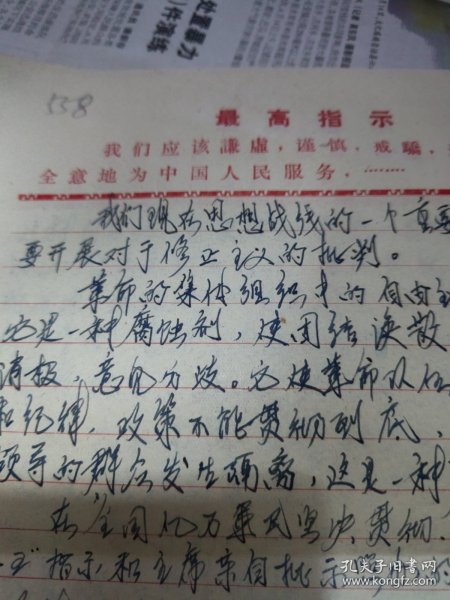 处置暴力
558
最高指示
我们应该謙虛，谨慎，戒驕，
全意地为中国人民服务，……
我们现在思想战线的一个重要
要开展对于修正主义的批判。
革命的集体组织中的自由主
它是一种腐蚀剂，使团结涣散
消极，意见分歧。它使革命队伍
和纪律，政策不能贯彻到底，
领导的群众发生隔离，这是一种
在全国亿万军民坚决贯彻
指示和主席亲自批示
孔夫子旧书网